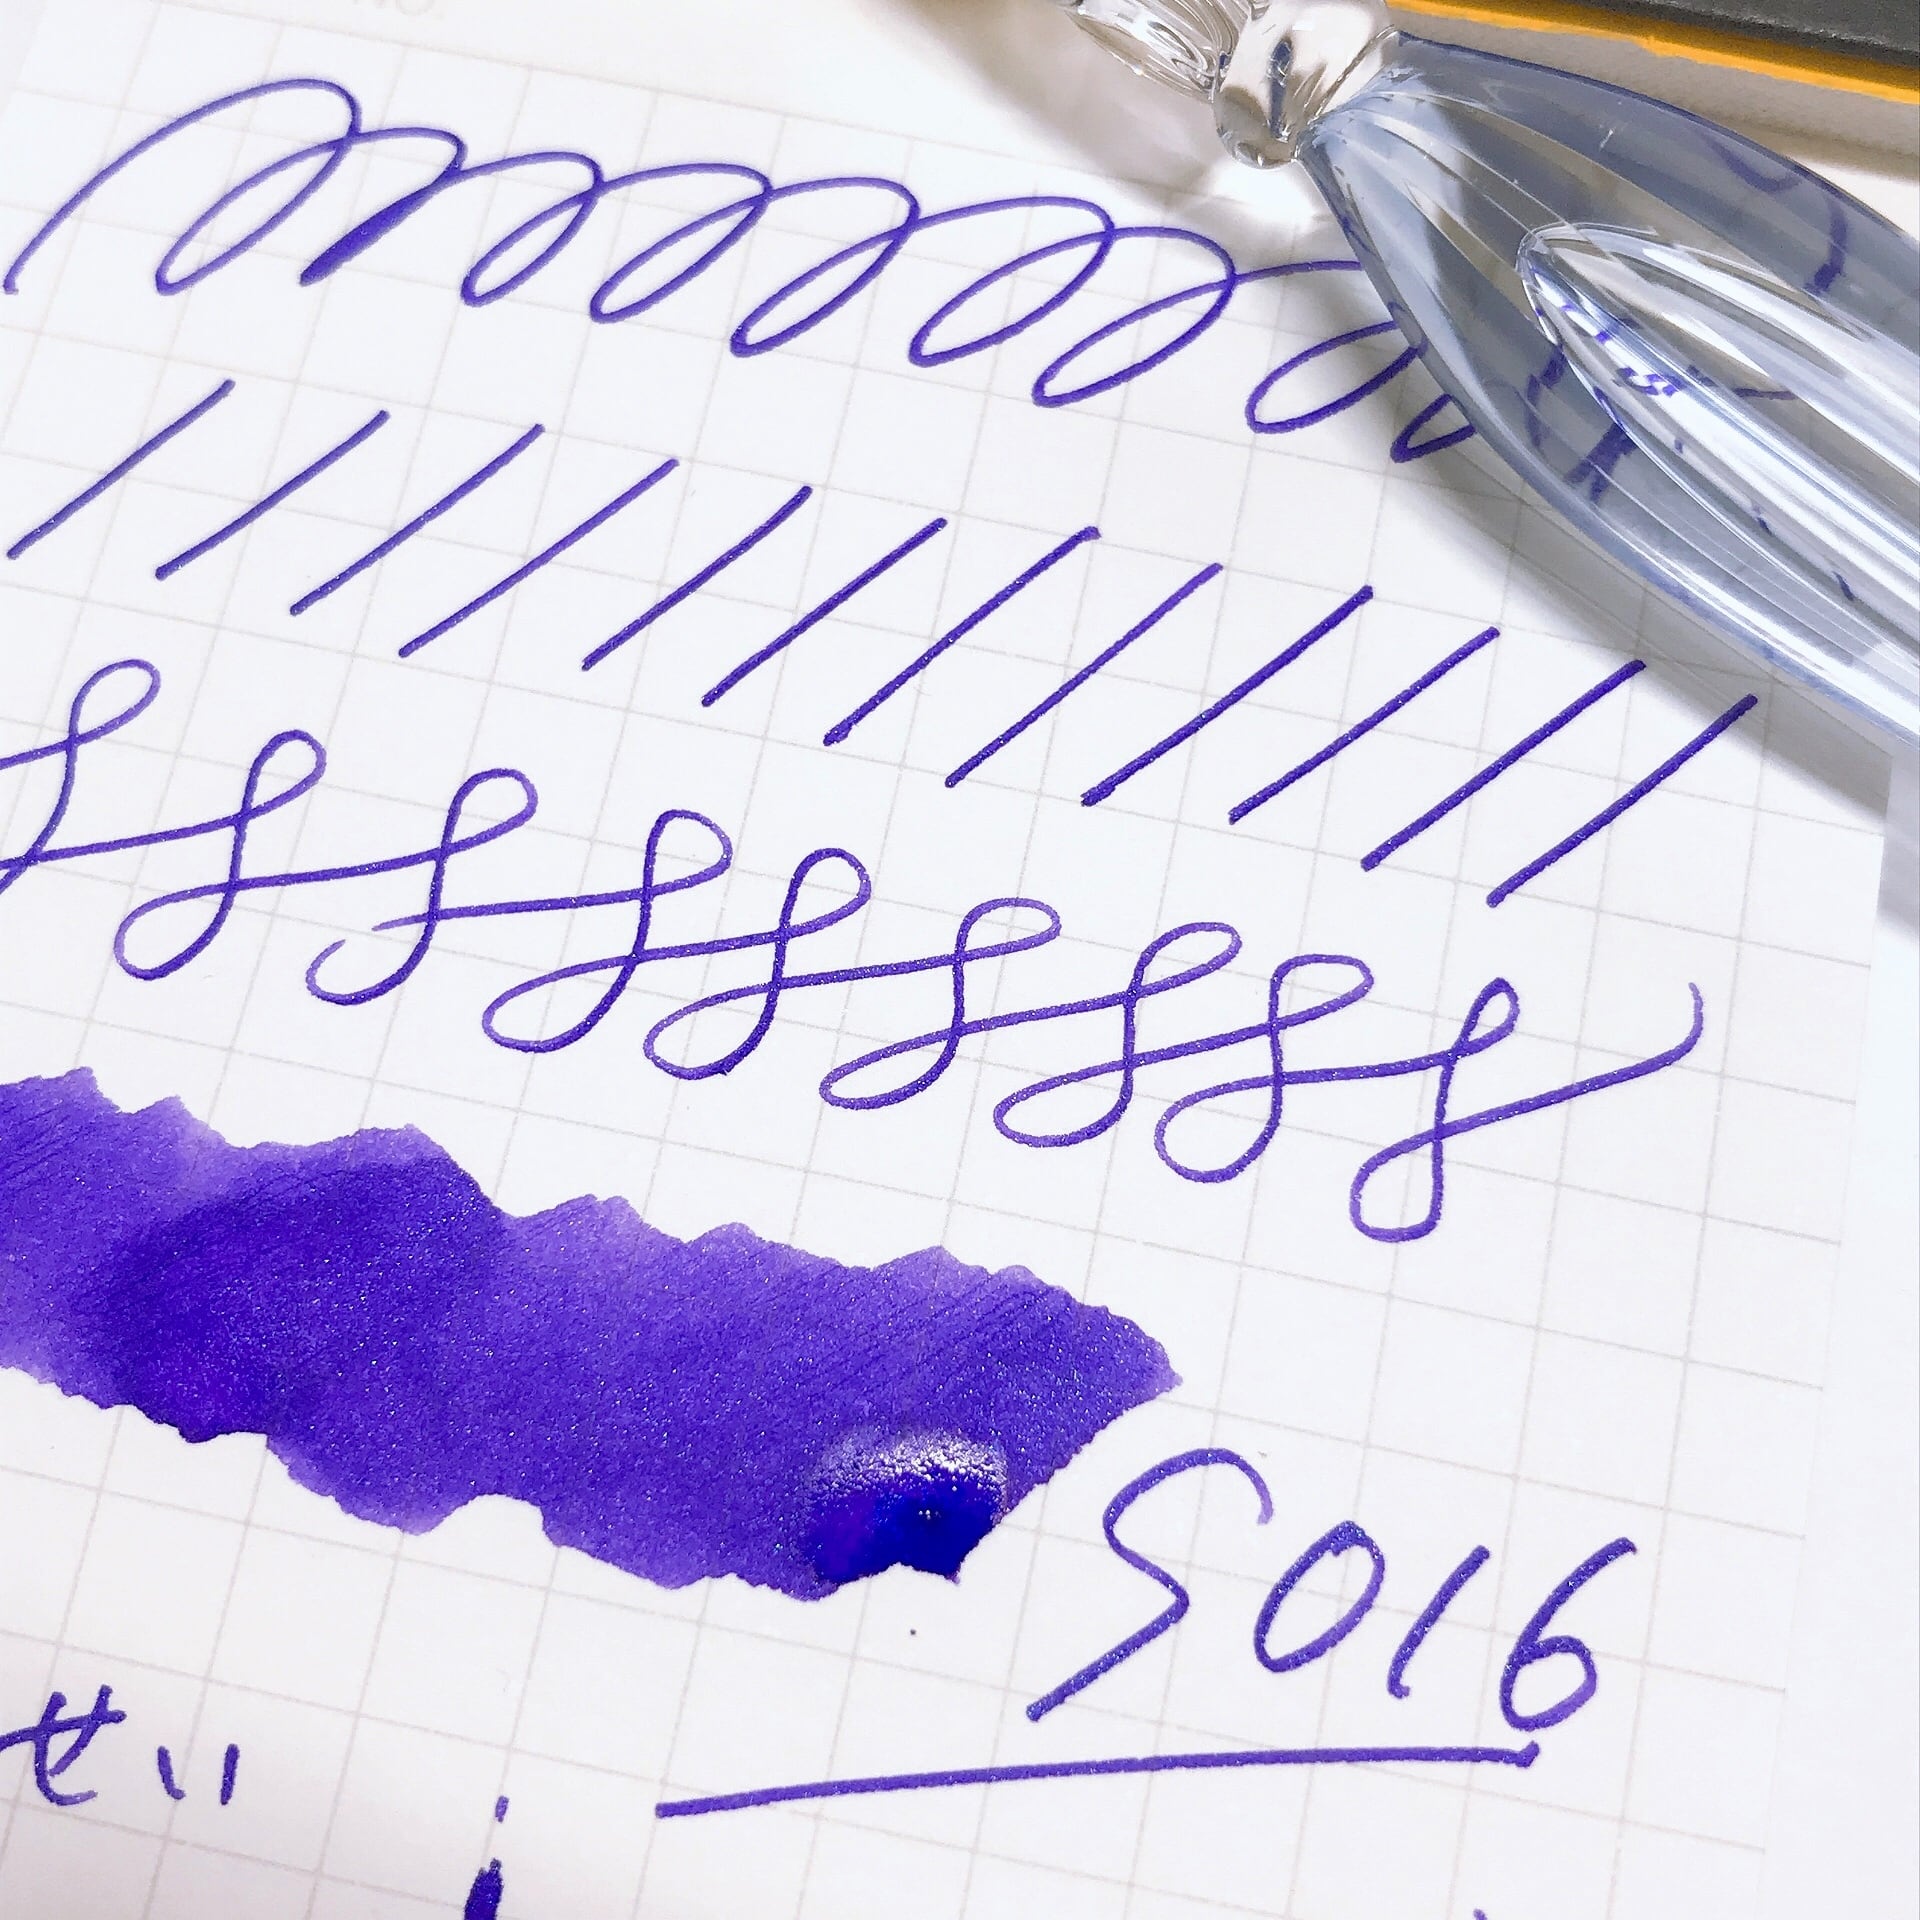 S016
せい